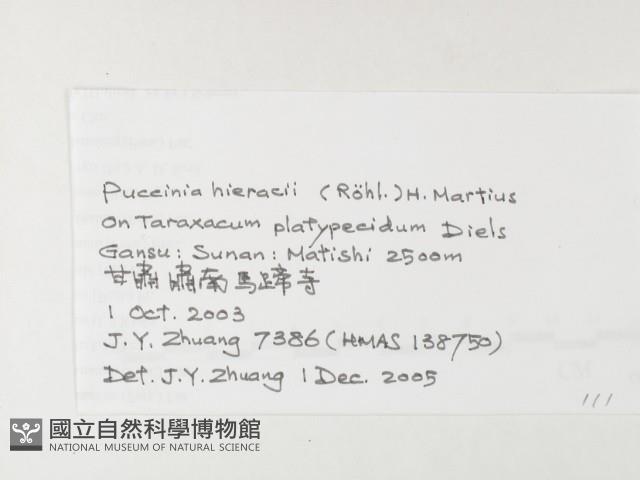 Puccinia hieracii (Röhl.) H. Martius
on Taraxacum platypecidum Diels
Gansu: Sunan: Matishi 2500m
甘肅 肅南 馬蹄寺
1 Oct. 2003
J.Y. Zhuang 7386 (HMAS 138750)
Det. J.Y. Zhuang 1 Dec. 2005
111
國立自然科學博物館
NATIONAL MUSEUM OF NATURAL SCIENCE